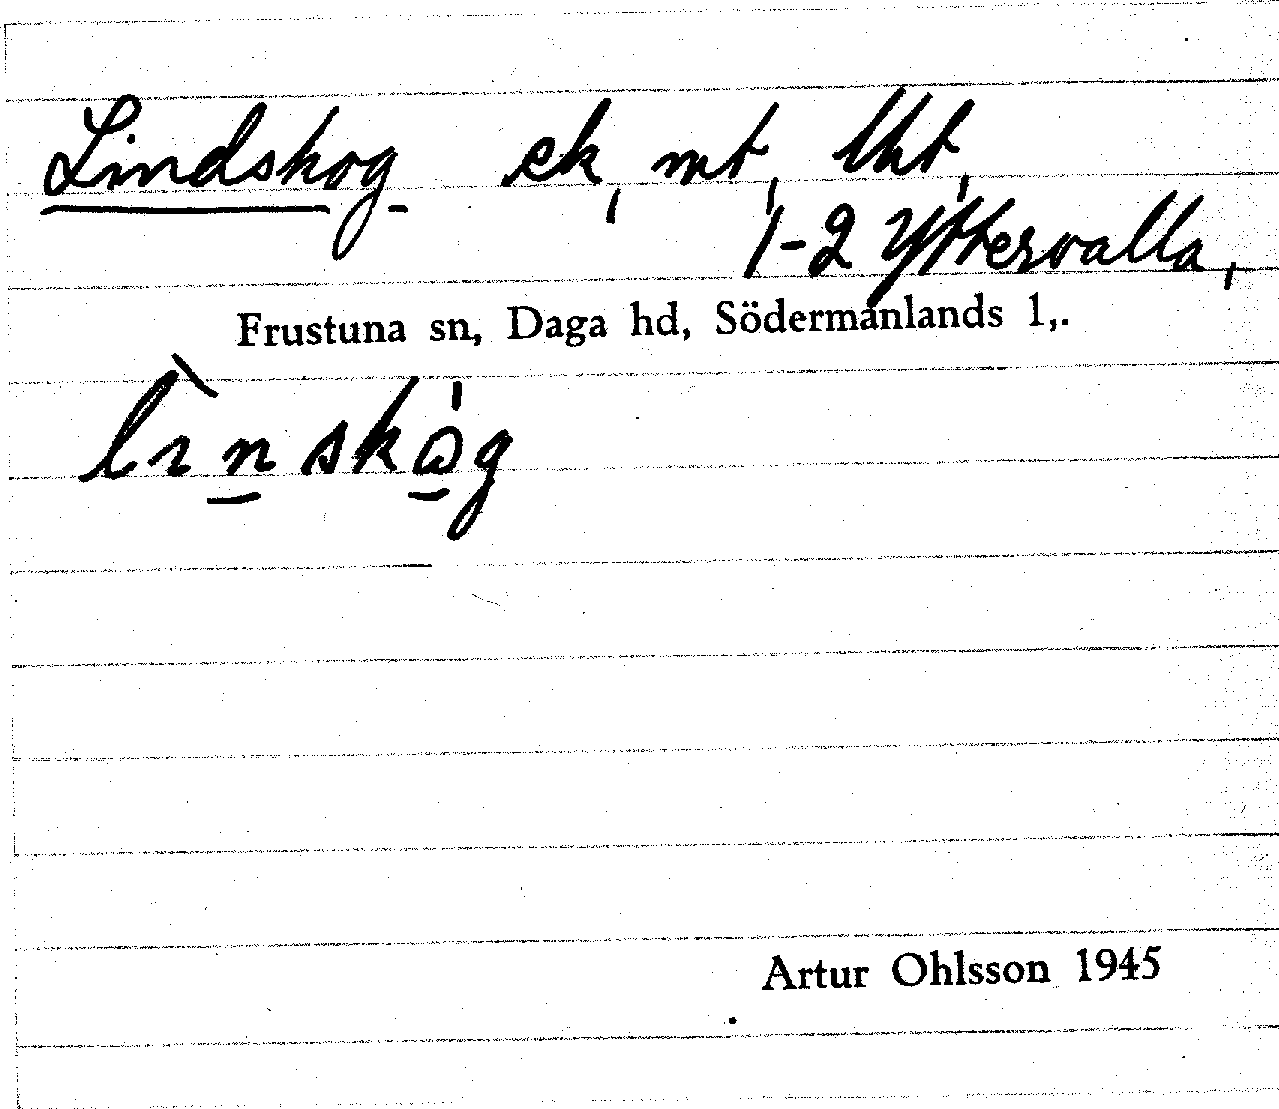 Lindskog ek, mt, lht,
1-2 Yttervalla,
Frustuna sn, Daga hd, Södermanlands l,.
Artur Ohlsson 1945